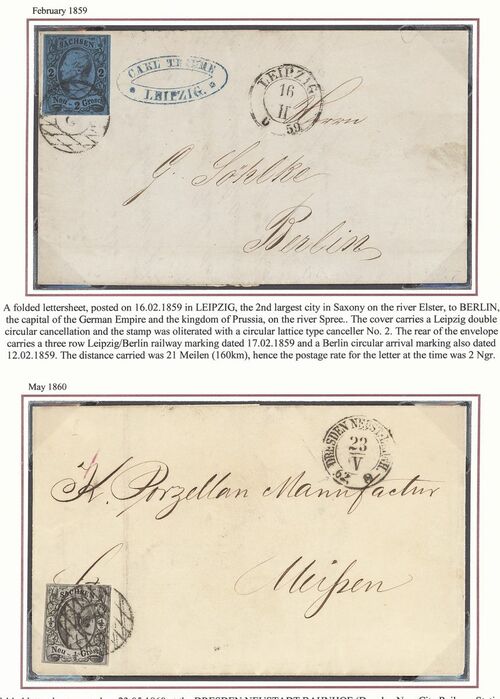 February 1859
SACHSEN
2 2
Neu - 2 Grosch
2
CARL
LEIPZIG.
LEIPZIG
16
II
59
Herrn
G. Söhlke
Berlin
A folded lettersheet, posted on 16.02.1859 in LEIPZIG, the 2nd largest city in Saxony on the river Elster, to BERLIN,
the capital of the German Empire and the kingdom of Prussia, on the river Spree.. The cover carries a Leipzig double
circular cancellation and the stamp was oliterated with a circular lattice type canceller No. 2. The rear of the envelope
carries a three row Leipzig/Berlin railway marking dated 17.02.1859 and a Berlin circular arrival marking also dated
12.02.1859. The distance carried was 21 Meilen (160km), hence the postage rate for the letter at the time was 2 Ngr.
May 1860
DRESDEN NEUST.
23
V
K. Porzellan Manufactur
Meißen
SACHSEN
Neu - ½ Grosch